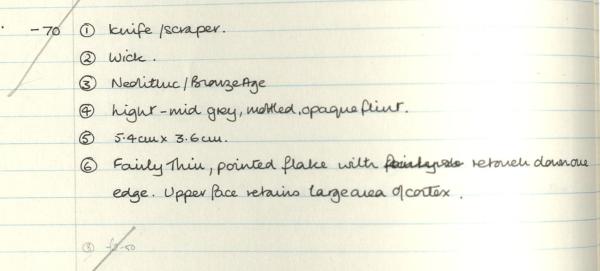 -70 ① Knife/scraper.
② Wick.
③ Neolithic/Bronze Age
④ Light-mid grey, mottled, opaque flint.
⑤ 5.4cm x 3.6cm.
⑥ Fairly Thin, pointed flake with retouch down one
edge. Upper face retains large area of cortex.
③